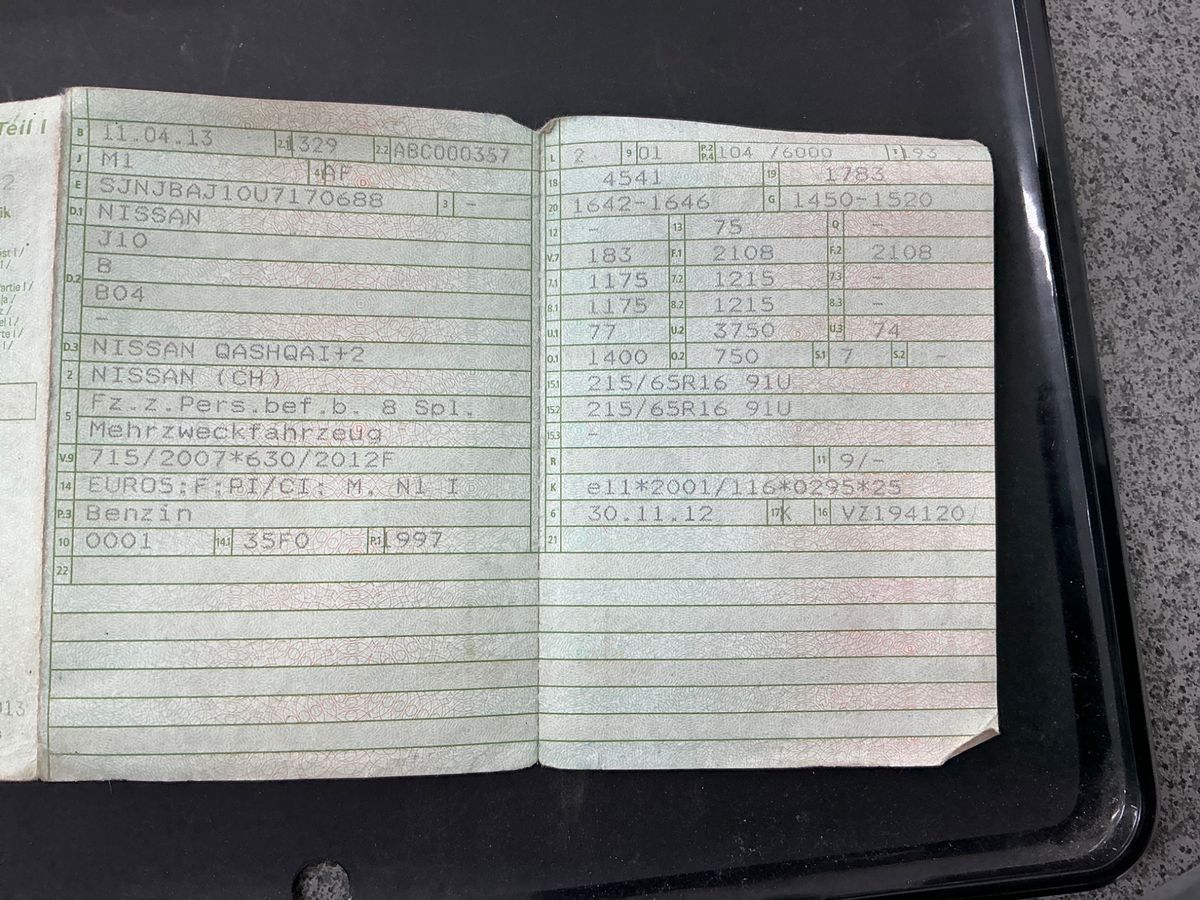 Teil I
B 11.04.13 2.1 329 2.2 ABC000357
J M1 4 AF
E SJNJBAJ10U7170688 3 -
D.1 NISSAN
J10
D.2 B
B04
-
D.3 NISSAN QASHQAI+2
2 NISSAN (CH)
5 Fz.z.Pers.bef.b. 8 Spl.
Mehrzweckfahrzeug
V.9 715/2007*630/2012F
14 EURO5;F;PI/CI; M, N1 I
P.3 Benzin
10 0001 14.1 35F0 P.1 1997
22
L 2 9 01 P.2 P.4 104 /6000 T 193
18 4541 19 1783
20 1642-1646 G 1450-1520
12 - 13 75 Q -
V.7 183 F.1 2108 F.2 2108
7.1 1175 7.2 1215 7.3 -
8.1 1175 8.2 1215 8.3 -
U.1 77 U.2 3750 U.3 74
O.1 1400 O.2 750 S.1 7 S.2 -
15.1 215/65R16 91U
15.2 215/65R16 91U
15.3 -
R 11 9/-
K e11*2001/116*0295*25
6 30.11.12 17 K 16 VZ194120
21